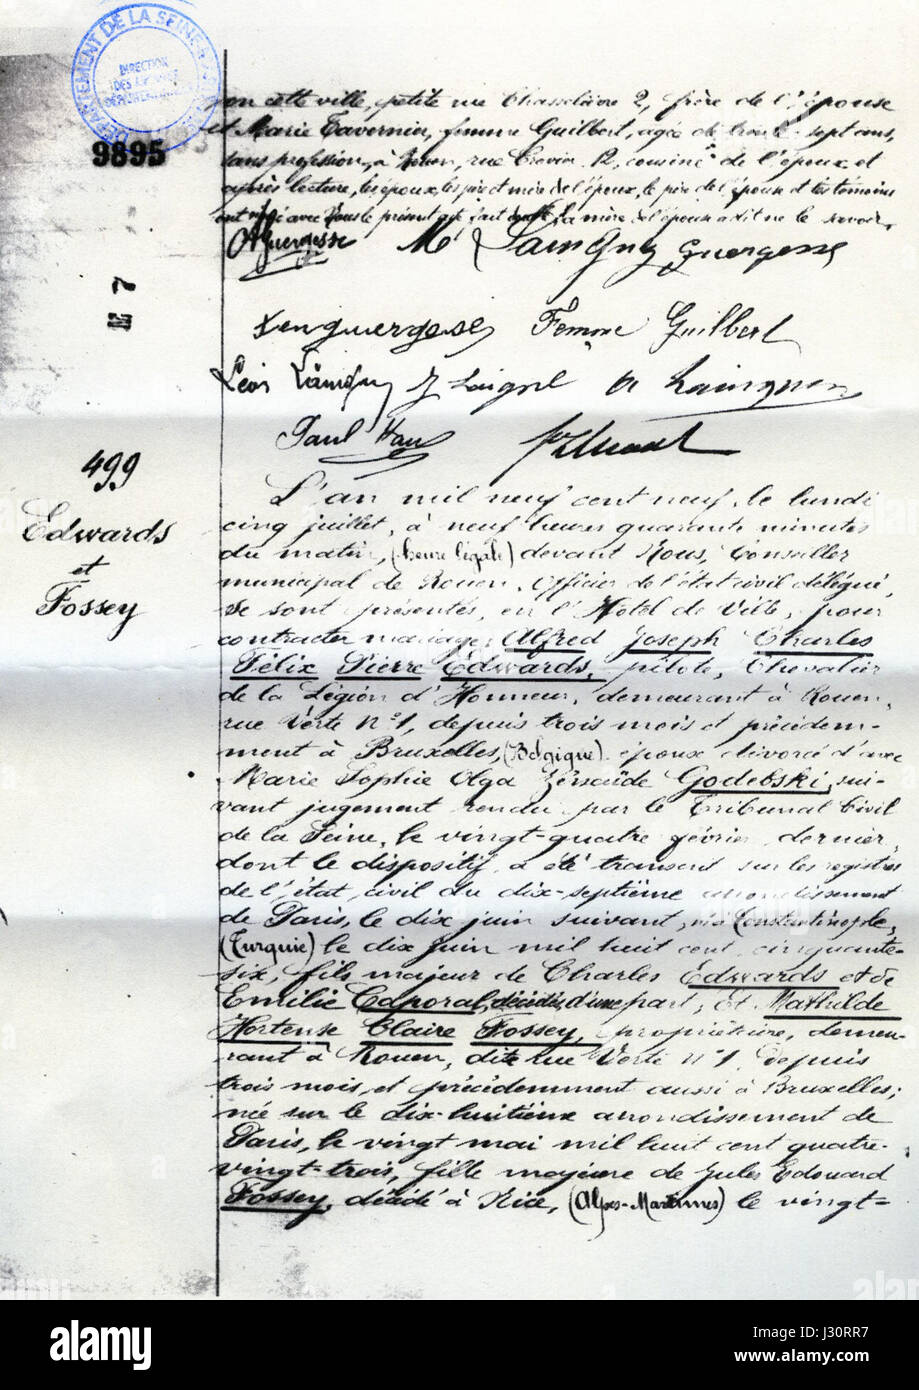 DEPARTEMENT DE LA SEINE
DIRECTION
DES
9895
N 7
en cette ville, petite rue Chasselièvre 2, frère de l'épouse
et Marie Tavernier, femme Guilbert, agée de trente-sept ans,
sans profession, à Rouen, rue Crevier 12, cousine de l'époux, et
après lecture, les époux, les père et mère de l'époux, le père de l'épouse et les témoins
ont signé avec Nous le présent acte, fait double, la mère de l'épouse a dit ne le savoir.
Guergesse M Guergesse
Femme Guilbert
Léon
Paul
499
Edwards
et
Fossey
L'an mil neuf cent neuf, le lundi
cinq juillet, à neuf heures quarante minutes
du matin, (heure légale) devant Nous, Conseiller
municipal de Rouen, Officier de l'état civil délégué,
se sont présentés, en l'Hôtel de Ville, pour
contracter mariage, Alfred Joseph Charles
Félix Pierre Edwards, pilote, Chevalier
de la Légion d'Honneur, demeurant à Rouen,
rue Verte N° 1, depuis trois mois et précédem-
ment à Bruxelles, (Belgique) époux divorcé d'avec
Marie Sophie Olga Zénaïde Godebski, sui-
vant jugement rendu par le Tribunal Civil
de la Seine, le vingt-quatre février dernier,
dont le dispositif a été transcrit sur les registres
de l'état civil du dix-septième arrondissement
de Paris, le dix juin suivant, né à Constantinople,
(Turquie) le dix juin mil huit cent cinquante-
six, fils majeur de Charles Edwards et de
Emilie Caporal, décédés, d'une part, Et Mathilde
Hortense Claire Fossey, propriétaire, demeu-
rant à Rouen, dite rue Verte N° 1, depuis
trois mois, et précédemment aussi à Bruxelles;
née sur le dix-huitième arrondissement de
Paris, le vingt mai mil huit cent quatre-
vingt-trois, fille majeure de Jules Edouard
Fossey, décédé à Nice, (Alpes-Maritimes) le vingt-
alamy
Image ID: J30RR7
www.alamy.com